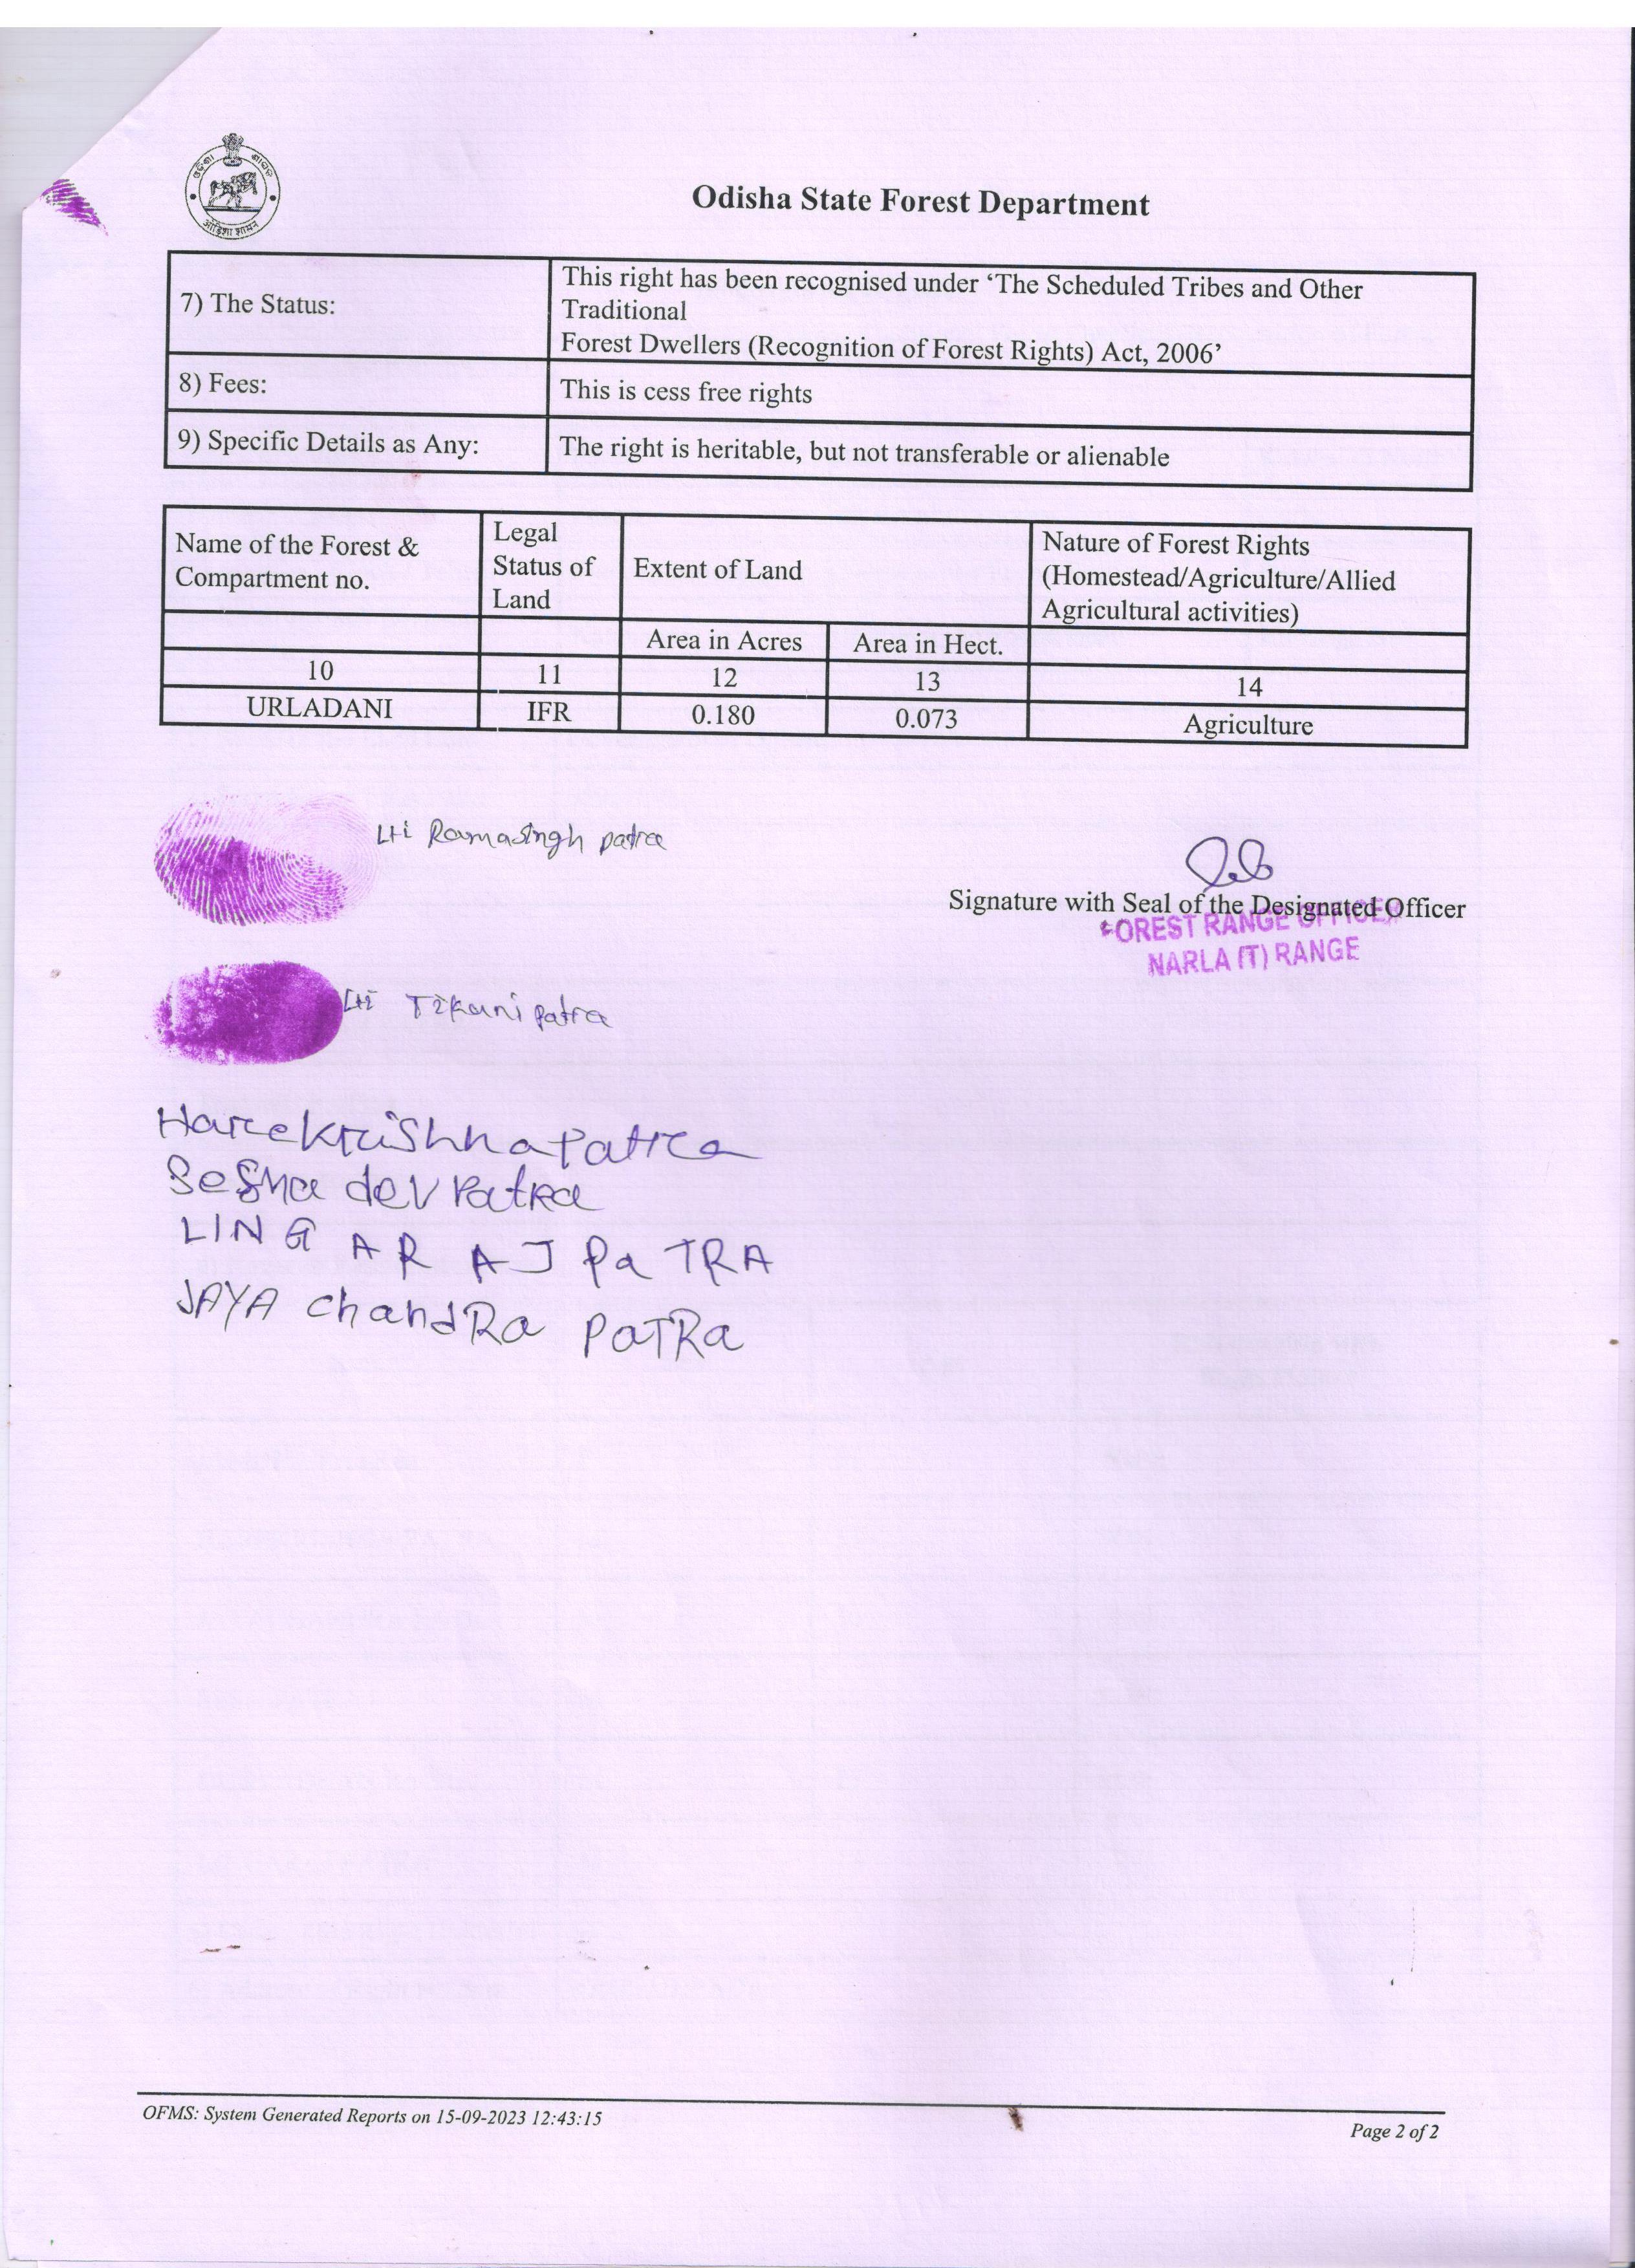 ଓଡ଼ିଶା ଶାସନ
ओड़िशा शासन
Odisha State Forest Department
7) The Status:
This right has been recognised under ‘The Scheduled Tribes and Other
Traditional
Forest Dwellers (Recognition of Forest Rights) Act, 2006’
8) Fees:
This is cess free rights
9) Specific Details as Any:
The right is heritable, but not transferable or alienable
Name of the Forest &
Compartment no.
Legal
Status of
Land
Extent of Land
Nature of Forest Rights
(Homestead/Agriculture/Allied
Agricultural activities)
Area in Acres
Area in Hect.
10 11 12 13 14
URLADANI IFR 0.180 0.073 Agriculture
Lti Ramasingh patra
Signature with Seal of the Designated Officer
FOREST RANGE OFFICER
NARLA (T) RANGE
Lti Tikani patra
Harekrishna Patra
Sesha dev Patra
LINGARAJ PaTRA
JAYA chandRa PaTRa
OFMS: System Generated Reports on 15-09-2023 12:43:15
Page 2 of 2